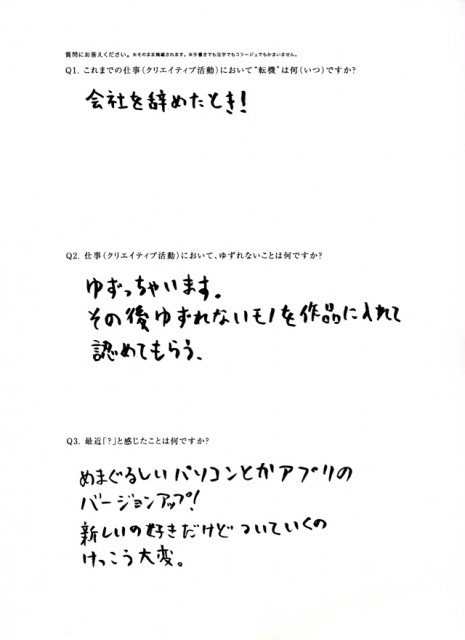 質問にお答えください。※そのまま掲載されます。※手書きでも活字でもコラージュでもかまいません。
Q1. これまでの仕事(クリエイティブ活動)において“転機”は何(いつ)ですか?
会社を辞めたとき!
Q2. 仕事(クリエイティブ活動)において、ゆずれないことは何ですか?
ゆずっちゃいます。
その後ゆずれないモノを作品に入れて
認めてもらう、
Q3. 最近「?」と感じたことは何ですか?
めまぐるしいパソコンとかアプリの
バージョンアップ!
新しいの好きだけど ついていくの
けっこう大変。